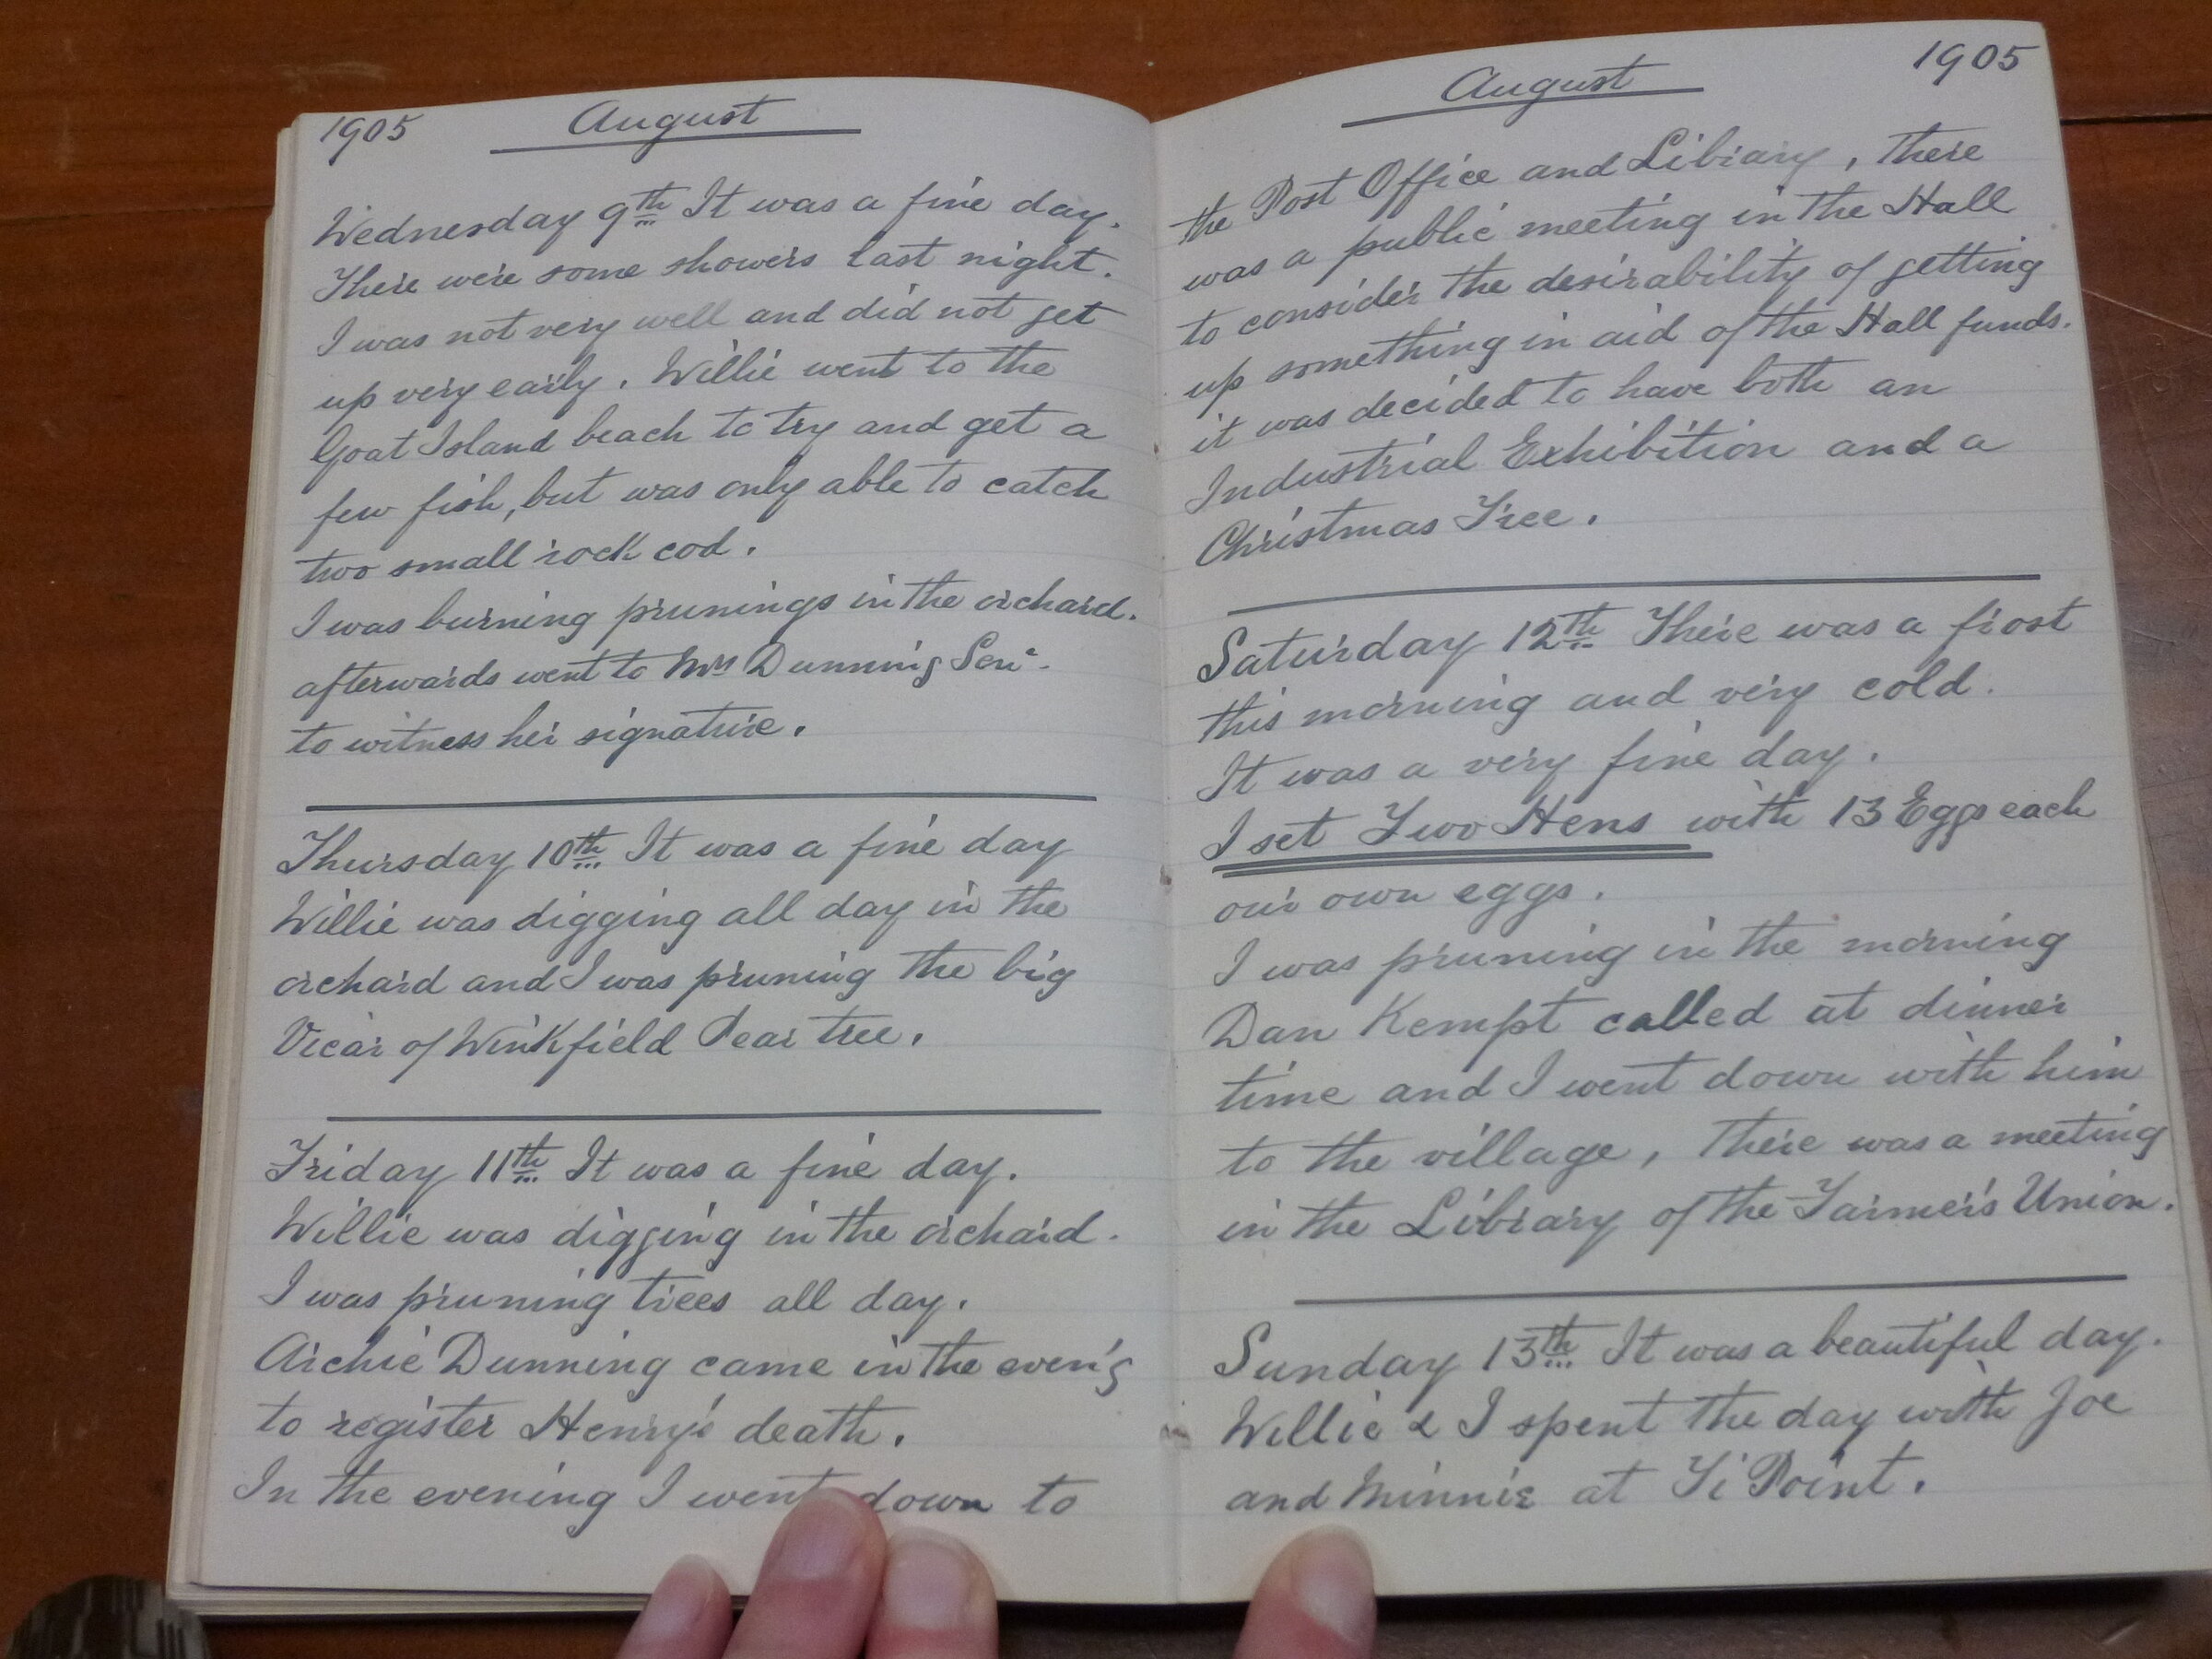 1905 August
Wednesday 9th It was a fine day.
There were some showers last night.
I was not very well and did not get
up very early. Willie went to the
Goat Island beach to try and get a
few fish, but was only able to catch
two small rock cod.
I was burning prunings in the orchard.
afterwards went to Mrs Dunning Senr.
to witness her signature.
Thursday 10th It was a fine day
Willie was digging all day in the
orchard and I was pruning the big
Vicar of Winkfield Pear tree.
Friday 11th It was a fine day.
Willie was digging in the orchard.
I was pruning trees all day.
Archie Dunning came in the even'g
to register Henry's death.
In the evening I went down to
August 1905
the Post Office and Library, there
was a public meeting in the Hall
to consider the desirability of getting
up something in aid of the Hall funds.
it was decided to have both an
Industrial Exhibition and a
Christmas Tree.
Saturday 12th There was a frost
this morning and very cold.
It was a very fine day.
I set Two Hens with 13 Eggs each
our own eggs.
I was pruning in the morning
Dan Kempt called at dinner
time and I went down with him
to the village, There was a meeting
in the Library of the Farmer's Union.
Sunday 13th It was a beautiful day.
Willie & I spent the day with Joe
and Minnie at Ti Point.